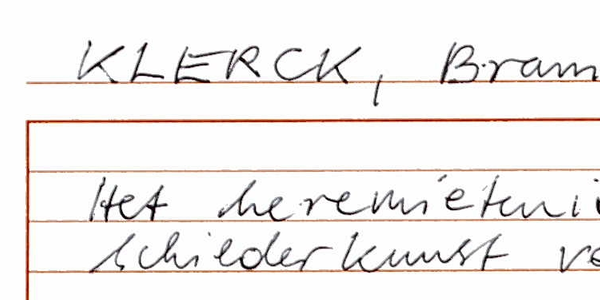 KLERCK, Bram
Het heremieteni
schilderkunst ve